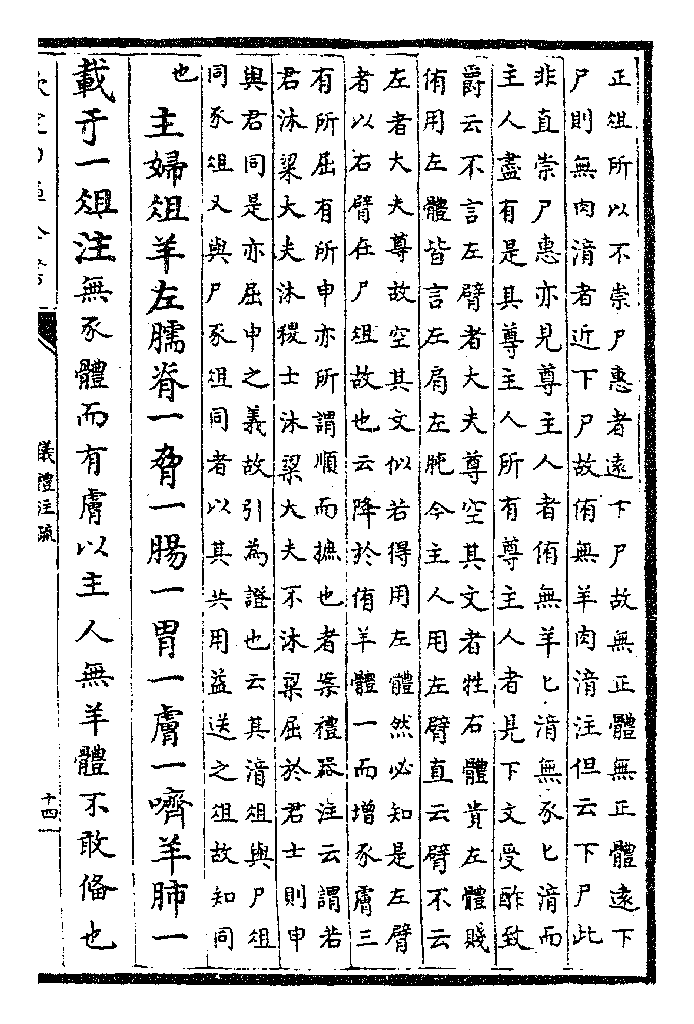 正俎所以不崇尸惠者遠下尸故無正體無正體遠下
尸則無肉湆者近下尸故侑無羊肉湆注但云下尸此
非直崇尸惠亦見尊主人者侑無羊匕湆無豕匕湆而
主人盡有是其尊主人所有尊主人者見下文受酢致
爵云不言左臂者大夫尊空其文者牲右體貴左體賤
侑用左體皆言左肩左肫今主人用左臂直云臂不云
左者大夫尊故空其文似若得用左體然必知是左臂
者以右臂在尸俎故也云降於侑羊體一而增豕膚三
有所屈有所申亦所謂順而摭也者案禮器注云謂若
君沐粱大夫沐稷士沐粱大夫不沐粱屈於君士則申
與君同是亦屈申之義故引為證也云其湆俎與尸俎
同豕俎又與尸豕俎同者以其共用益送之俎故知同
也
主婦俎羊左臑脊一脅一腸一胃一膚一嚌羊肺一
載于一俎注無豕體而有膚以主人無羊體不敢備也
儀禮注疏
十四